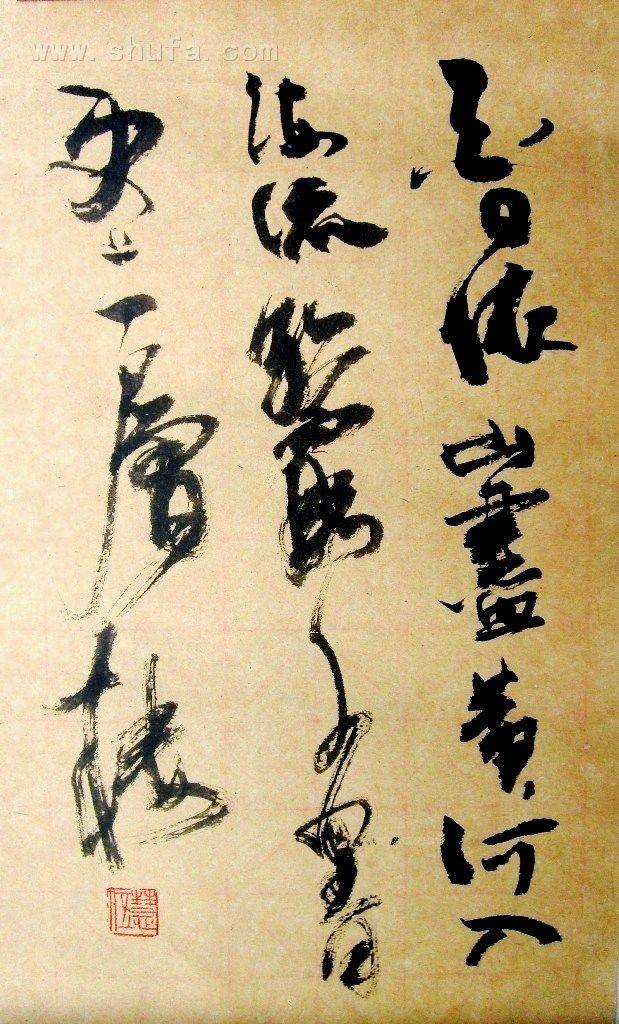 www.shufa.com
白日依山盡黃河入
海流欲窮千里目
更上一層樓